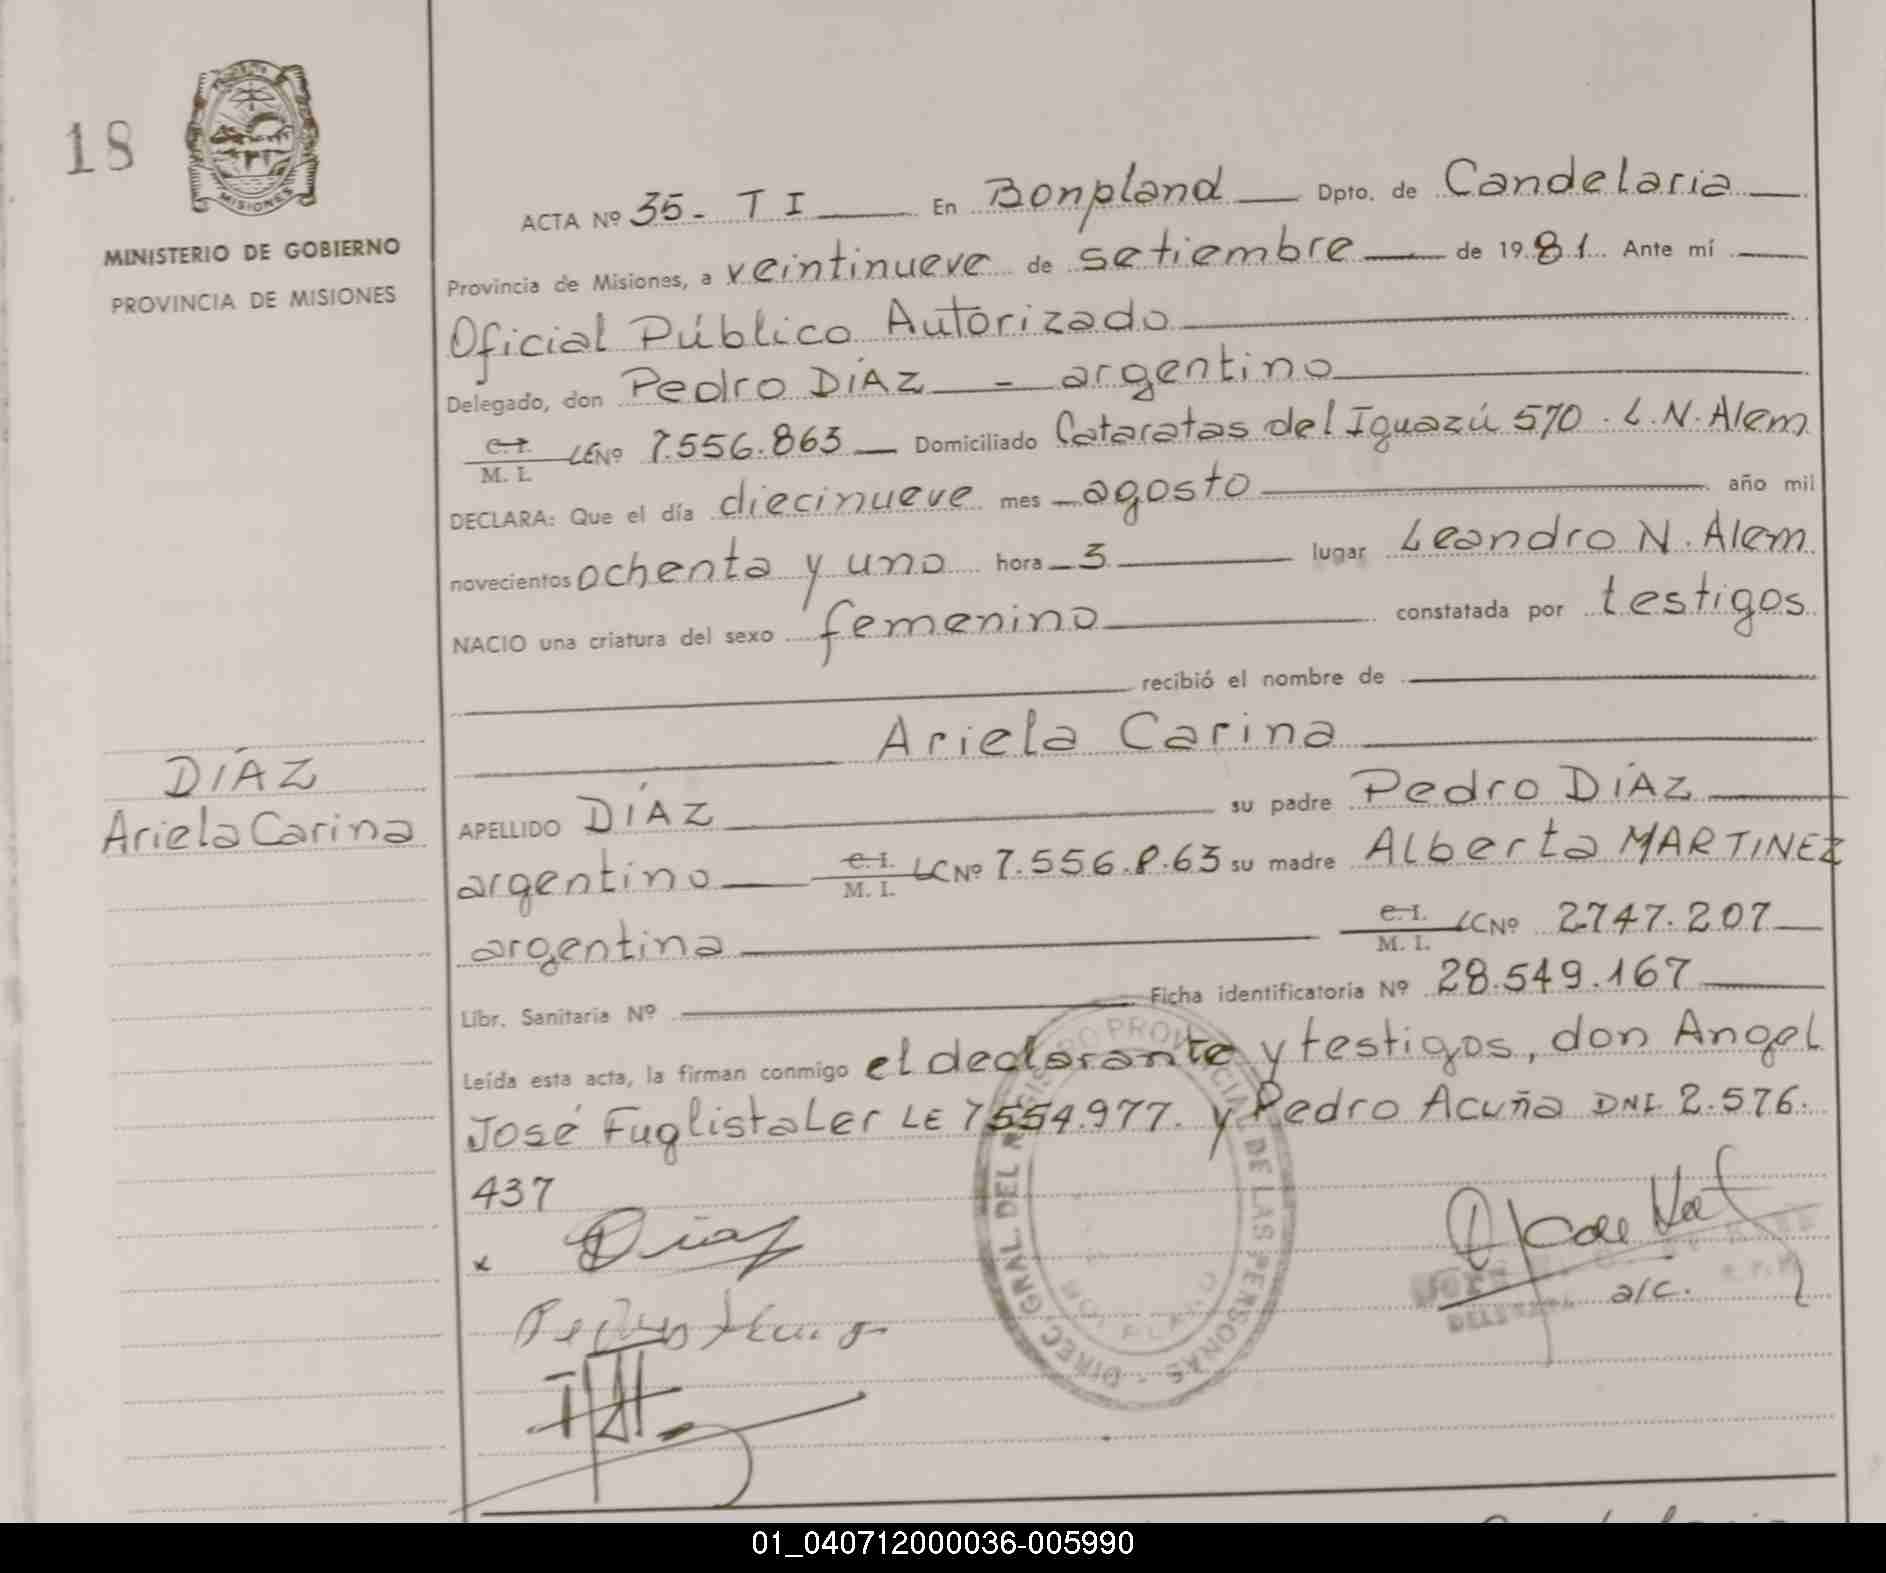 18
MISIONES
MINISTERIO DE GOBIERNO
PROVINCIA DE MISIONES
ACTA Nº 35- T I En Bonpland Dpto. de Candelaria
Provincia de Misiones, a veintinueve de setiembre de 1981. Ante mí
Oficial Público Autorizado
Delegado, don Pedro DÍAZ - argentino
C.I. M.I. LE Nº 7.556.863 Domiciliado Cataratas del Iguazú 570. L.N. Alem
DECLARA: Que el día diecinueve mes agosto año mil
novecientos ochenta y uno hora 3 lugar Leandro N. Alem
NACIO una criatura del sexo femenino constatada por testigos
recibió el nombre de
Ariela Carina
DÍAZ
Ariela Carina
APELLIDO DÍAZ su padre Pedro DÍAZ
argentino C.I. M.I. LC Nº 7.556.863 su madre Alberta MARTINEZ
argentina C.I. M.I. LC Nº 2747.207
Libr. Sanitaria Nº Ficha identificatoria Nº 28.549.167
Leída esta acta, la firman conmigo el declarante y testigos, don Angel
José Fuglistaler LE 7554.977. y Pedro Acuña DNI. 2.576.
437
x Diaz
a/c.
DIREC. GRAL. DEL REGISTRO PROVINCIAL DE LAS PERSONAS
BONPLAND
01_040712000036-005990